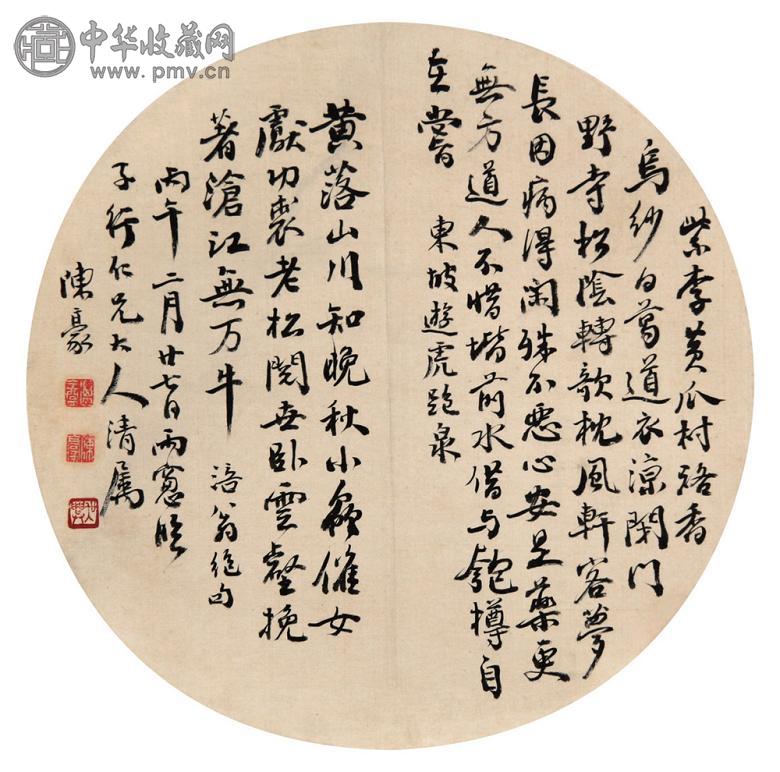 中华收藏网
www.pmv.cn
紫李黄瓜村路香
烏紗白葛道衣涼閉門
野寺松陰轉欹枕風軒客夢
長因病得閑殊不惡心安是藥更
無方道人不惜堦前水借与匏樽自
在嘗　東坡遊虎跑泉
黄落山川知晚秋小蟲催女
獻功裘老松閱世卧雲壑挽
著滄江無万牛　涪翁絶句
丙午二月廿七日雨窓臨
子行仁兄大人清属
陳豪